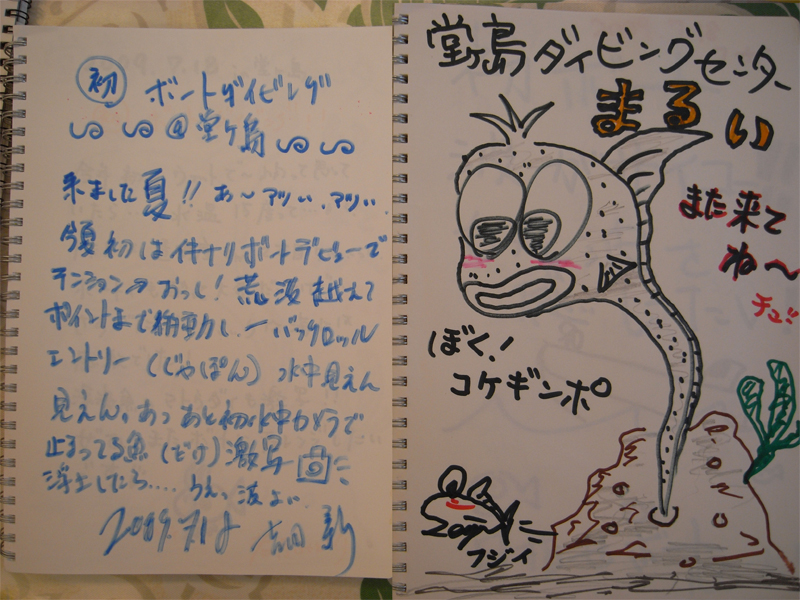 初 ボートダイビング
@堂ヶ島
来ました夏!! あ〜アツい、アツい
今夏初はイキナリボートデビューで
テンション↗おっし! 荒波越えて
ポイントまで移動し、ーバックロール
エントリー (じゃぽん) 水中見えん
見えん。あっ あと初水中カメラで
止まってる魚 (だけ) 激写
浮上したら.... うえっ 波よい
2009.7.18
堂ヶ島ダイビングセンター
まるい
また来て
ね〜
チュ!!
ぼく!
コケギンポ
2009
フジイ